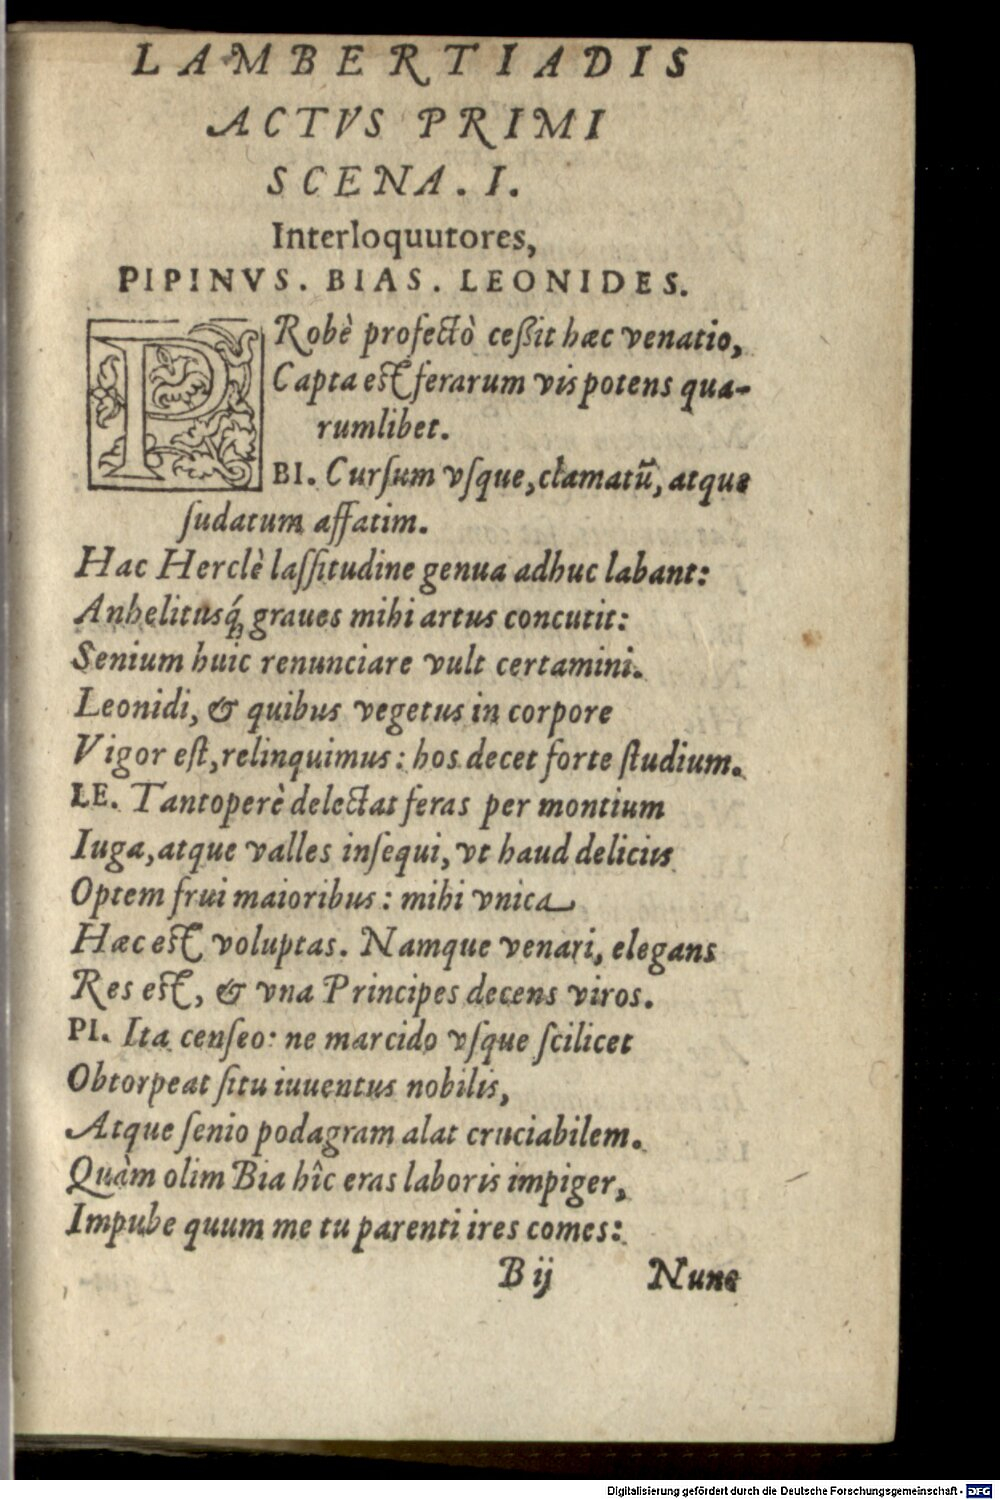 LAMBERTIADIS
ACTVS PRIMI
SCENA. I.
Interloquutores,
PIPINVS. BIAS. LEONIDES.
PRobè profectò ceßit hæc venatio,
Capta est ferarum vis potens qua-
rumlibet.
BI. Cursum vsque, clamatũ, atque
sudatum affatim.
Hac Herclè lassitudine genua adhuc labant:
Anhelitusq́ꝫ graues mihi artus concutit:
Senium huic renunciare vult certamini.
Leonidi, & quibus vegetus in corpore
Vigor est, relinquimus: hos decet forte studium.
LE. Tantoperè delectat feras per montium
Iuga, atque valles insequi, vt haud deliciis
Optem frui maioribus: mihi vnica
Hæc est voluptas. Namque venari, elegans
Res est, & vna Principes decens viros.
PI. Ita censeo: ne marcido vsque scilicet
Obtorpeat situ iuuentus nobilis,
Atque senio podagram alat cruciabilem.
Quàm olim Bia hîc eras laboris impiger,
Impube quum me tu parenti ires comes:
B ij Nunc
Digitalisierung gefördert durch die Deutsche Forschungsgemeinschaft - DFG